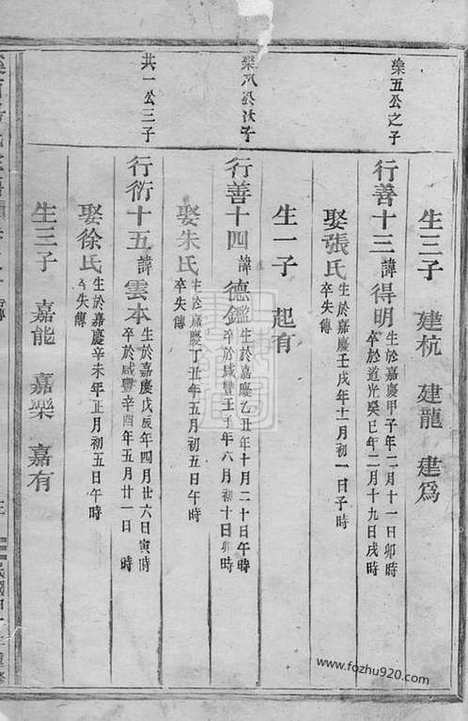 生三子 建杭 建龍 建爲
樂五公之子
行善十三 諱得明 生於嘉慶甲子年二月十一日卯時
卒於道光癸巳年二月十九日戌時
娶張氏 生於嘉慶壬戌年十一月初一日子時
卒失傳
生一子 起有
樂八公次子
行善十四 諱德鑑 生於嘉慶乙丑年十月二十日午時
卒於咸豐壬子年六月初十日卯時
娶朱氏 生於嘉慶丁丑年五月初五日午時
卒失傳
共一公三子
行衍十五 諱雲本 生於嘉慶戊辰年四月廿六日寅時
卒於咸豐辛酉年五月廿一日時
娶徐氏 生於嘉慶辛未年正月初五日午時
卒失傳
生三子 嘉能 嘉樂 嘉有
www.fozhu920.com